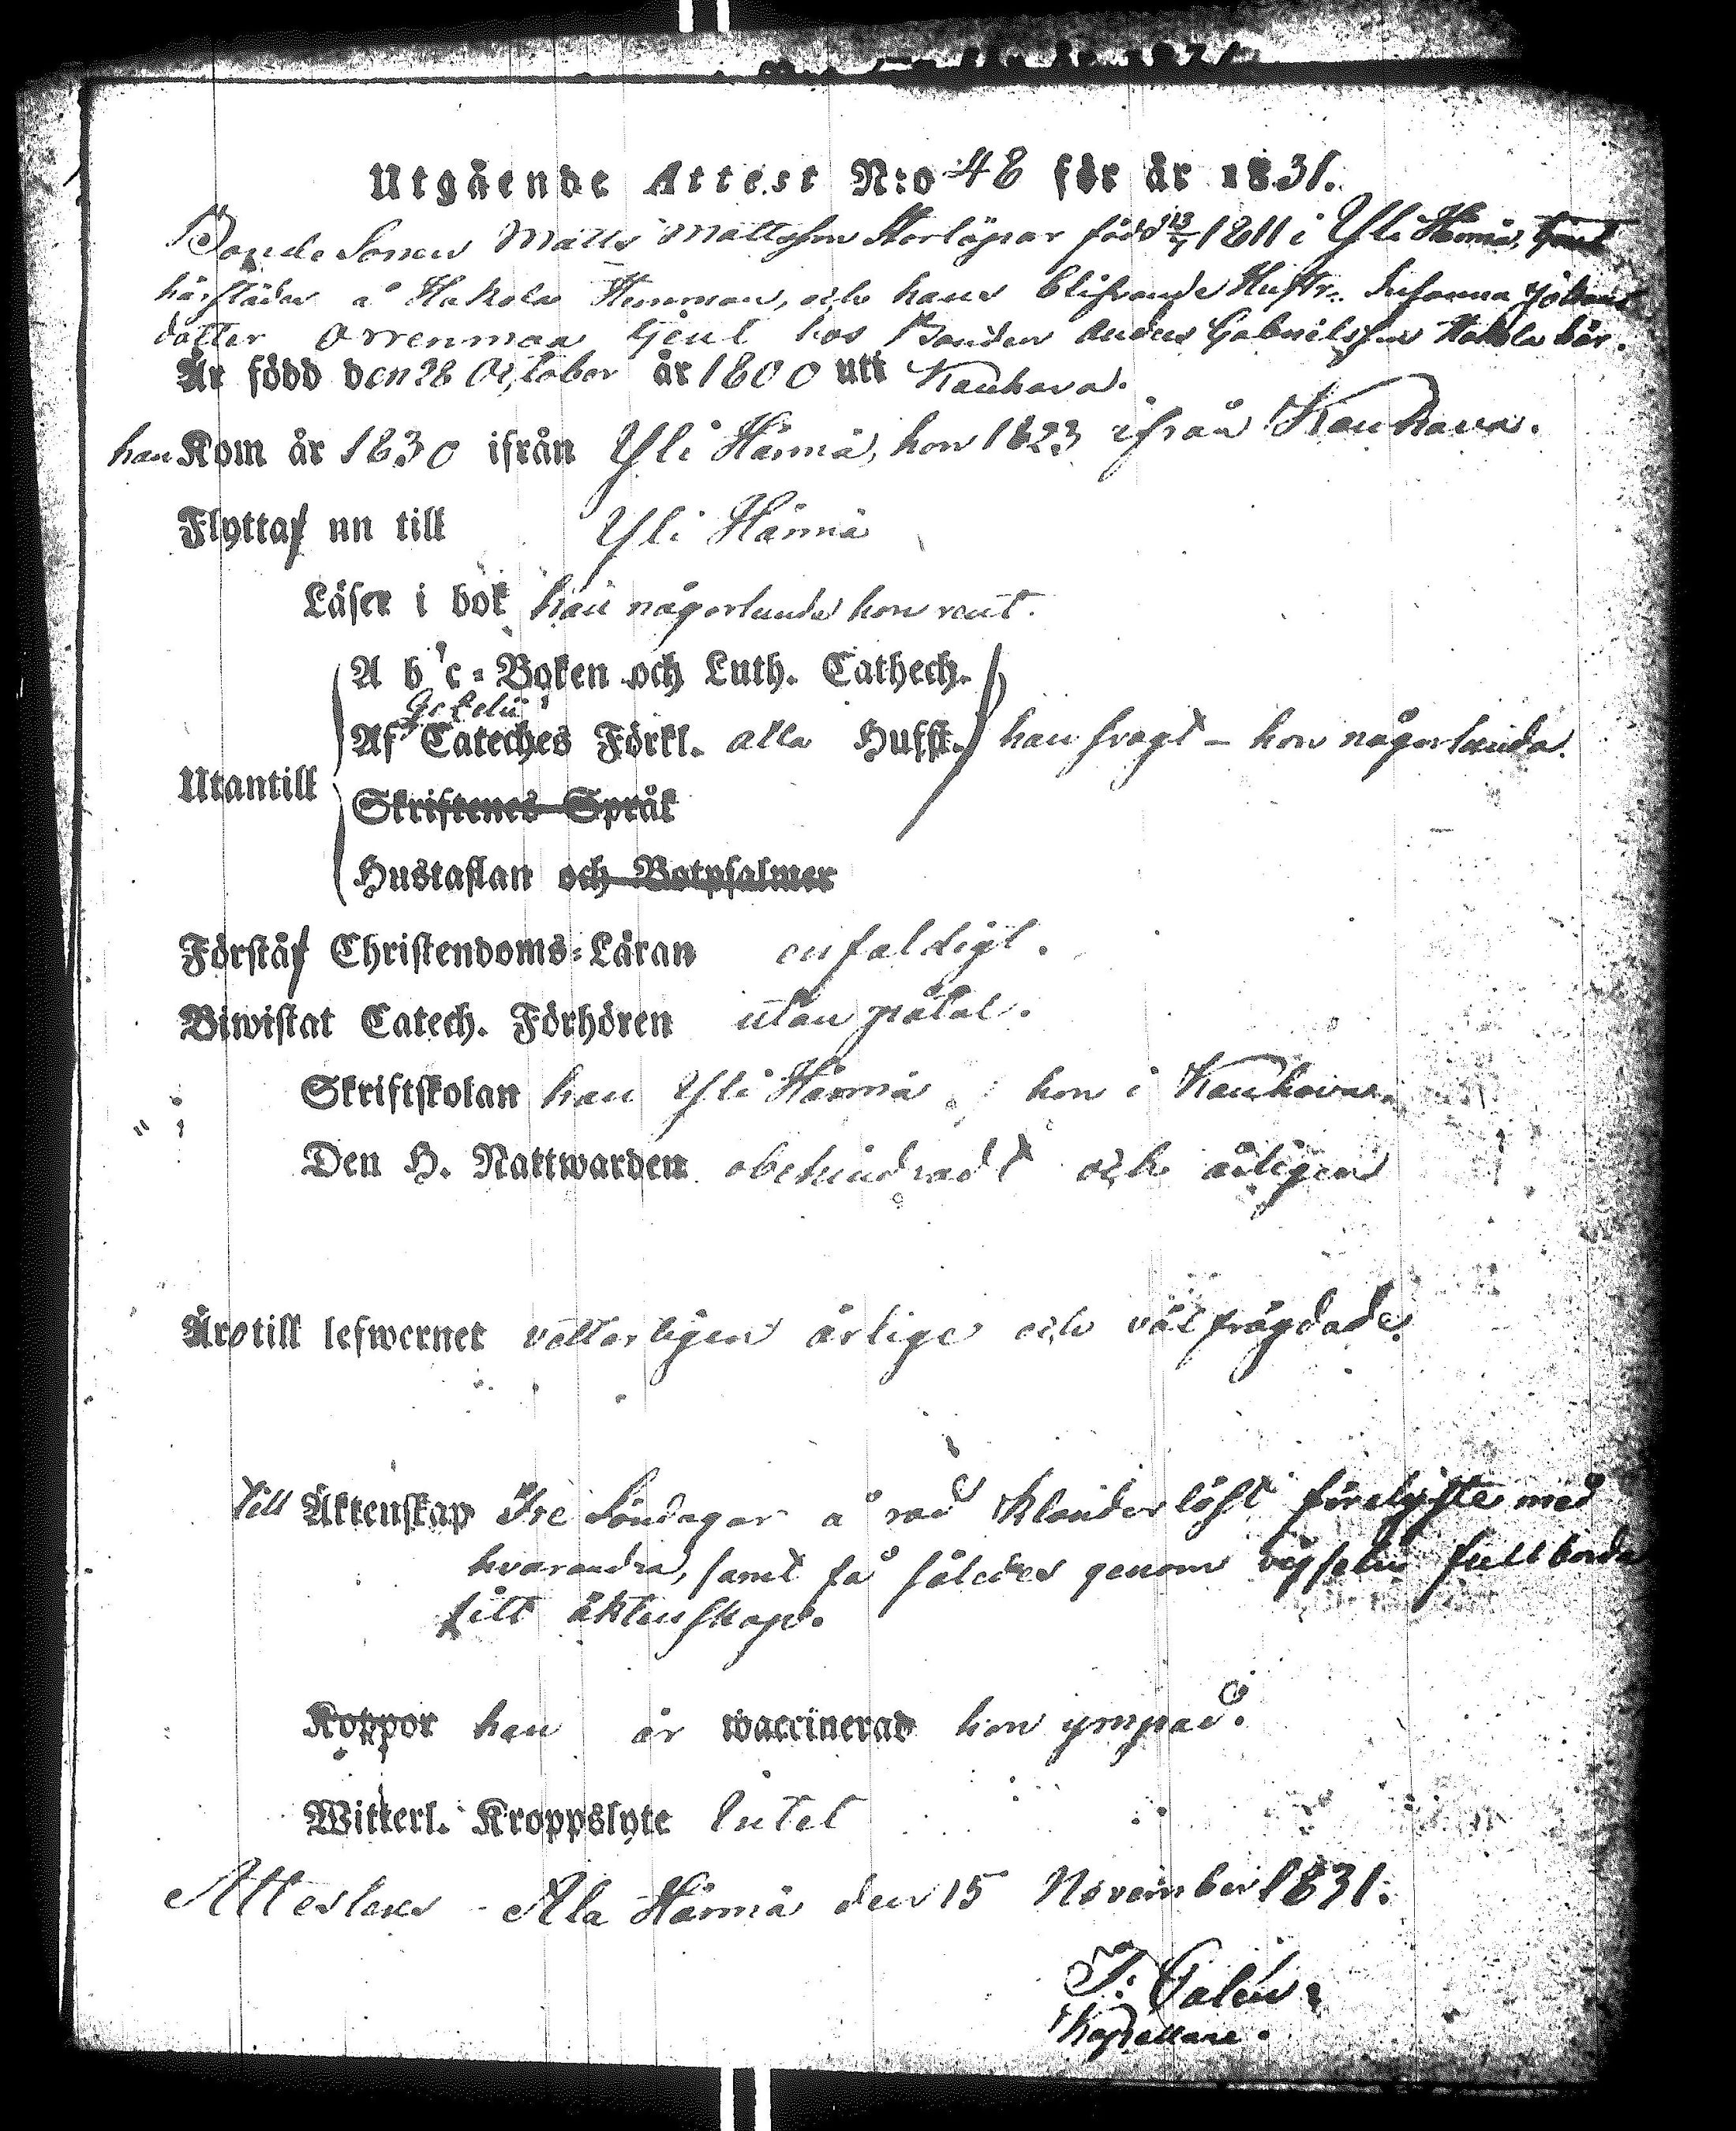 Utgående Attest N:o 48 för år 1831.
Bonde Sonen Matts Mattsson Storlöpar född 13/7 1811 i Yli Härmä, tjent
härstädes å Hakola Hemman, och hans blifvande Hustr. Susanna Johans
dotter Orrenmaa tjent hos Bonden Anders Gabrielsson Hakola här.
Är född den 28 October år 1800 uti Kauhava.
han Kom år 1830 ifrån Yli Härmä, hon 1823 ifrån Kauhava.
Flytta nu till Yli Härmä
Läser i bok han någorlunda hon rent.
A b c-Boken och Luth. Cathech.
Af Cateches Förkl. alla Hufst. han svagt - hon någorlunda.
Utantill
Skriftenes Språk
Hustaflan och Botpsalmer
Förstå Christendoms-Läran enfaldigt.
Biwistat Catech. Förhören utan påtal.
Skriftskolan han Yli Härmä, hon i Kauhava.
Den H. Nattwarden obehindradt och årligen
Äro till lefwernet vetterligen ärlige och välfrägdade.
Till Äktenskap Tre Söndagar å rad klanderlöst förelyste med
hvarandra, samt få således genom vigseln fullborda
sitt äktenskap.
Koppor han är waccinerad hon ympad.
Witterl. Kroppslyte Intet
Attesteras Ala Härmä den 15 November 1831.
Kapellane.